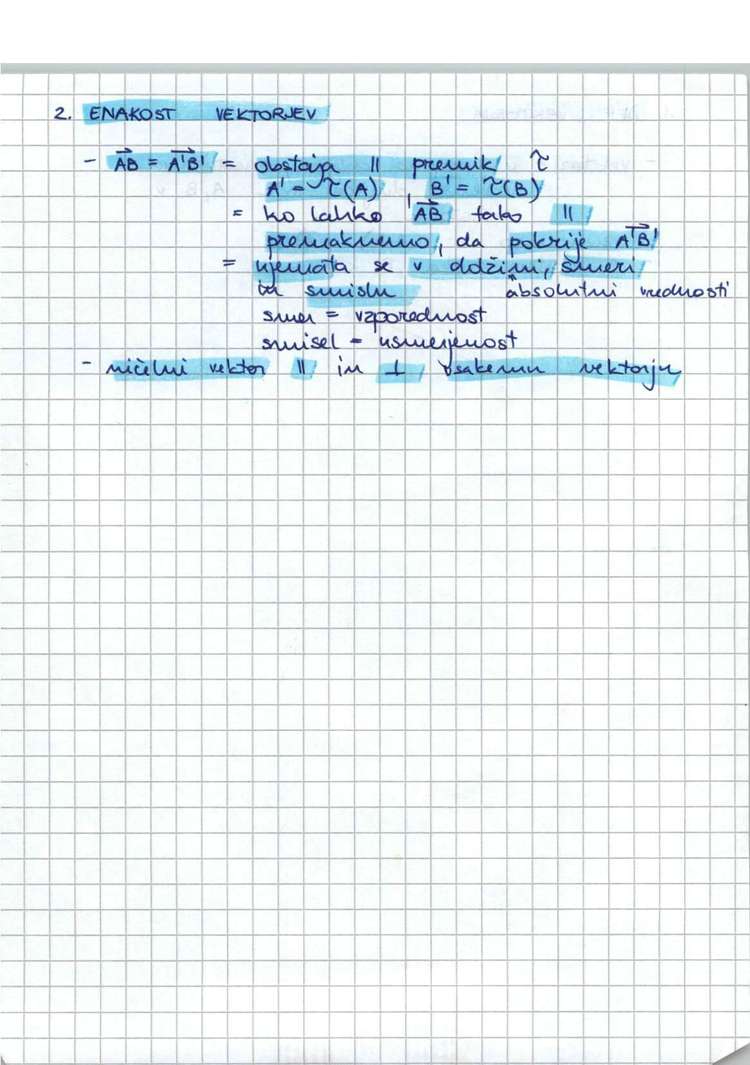 2. ENAKOST VEKTORJEV
- AB = A'B' = obstaja || premik τ
A' = τ(A), B' = τ(B)
= ko lahko AB tako ||
premaknemo, da pokrije A'B'
= ujemata se v dolžini, smeri
in smislu absolutni vrednosti
smer = vzporednost
smisel = usmerjenost
- ničelni vektor || in ⊥ vsakemu vektorju